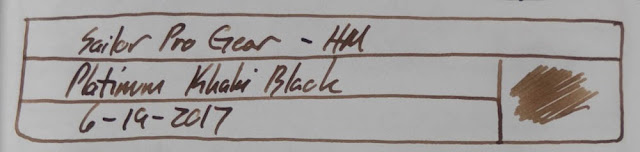 Sailor Pro Gear - HM
Platinum Khaki Black
6-19-2017